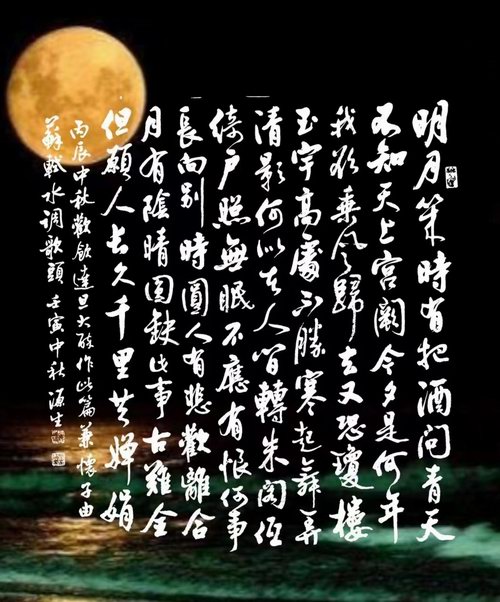 明月几時有把酒问青天
不知天上宫阙今夕是何年
我欲乘风归去又恐瓊楼
玉宇高處不勝寒起舞弄
清影何似在人间轉朱阁低
绮户照無眠不應有恨何事
長向别時圓人有悲歡離合
月有陰晴圆缺此事古難全
但願人长久千里共婵娟
丙辰中秋歡飲達旦大醉作此篇兼懷子由
蘇軾水调歌頭壬寅中秋源生